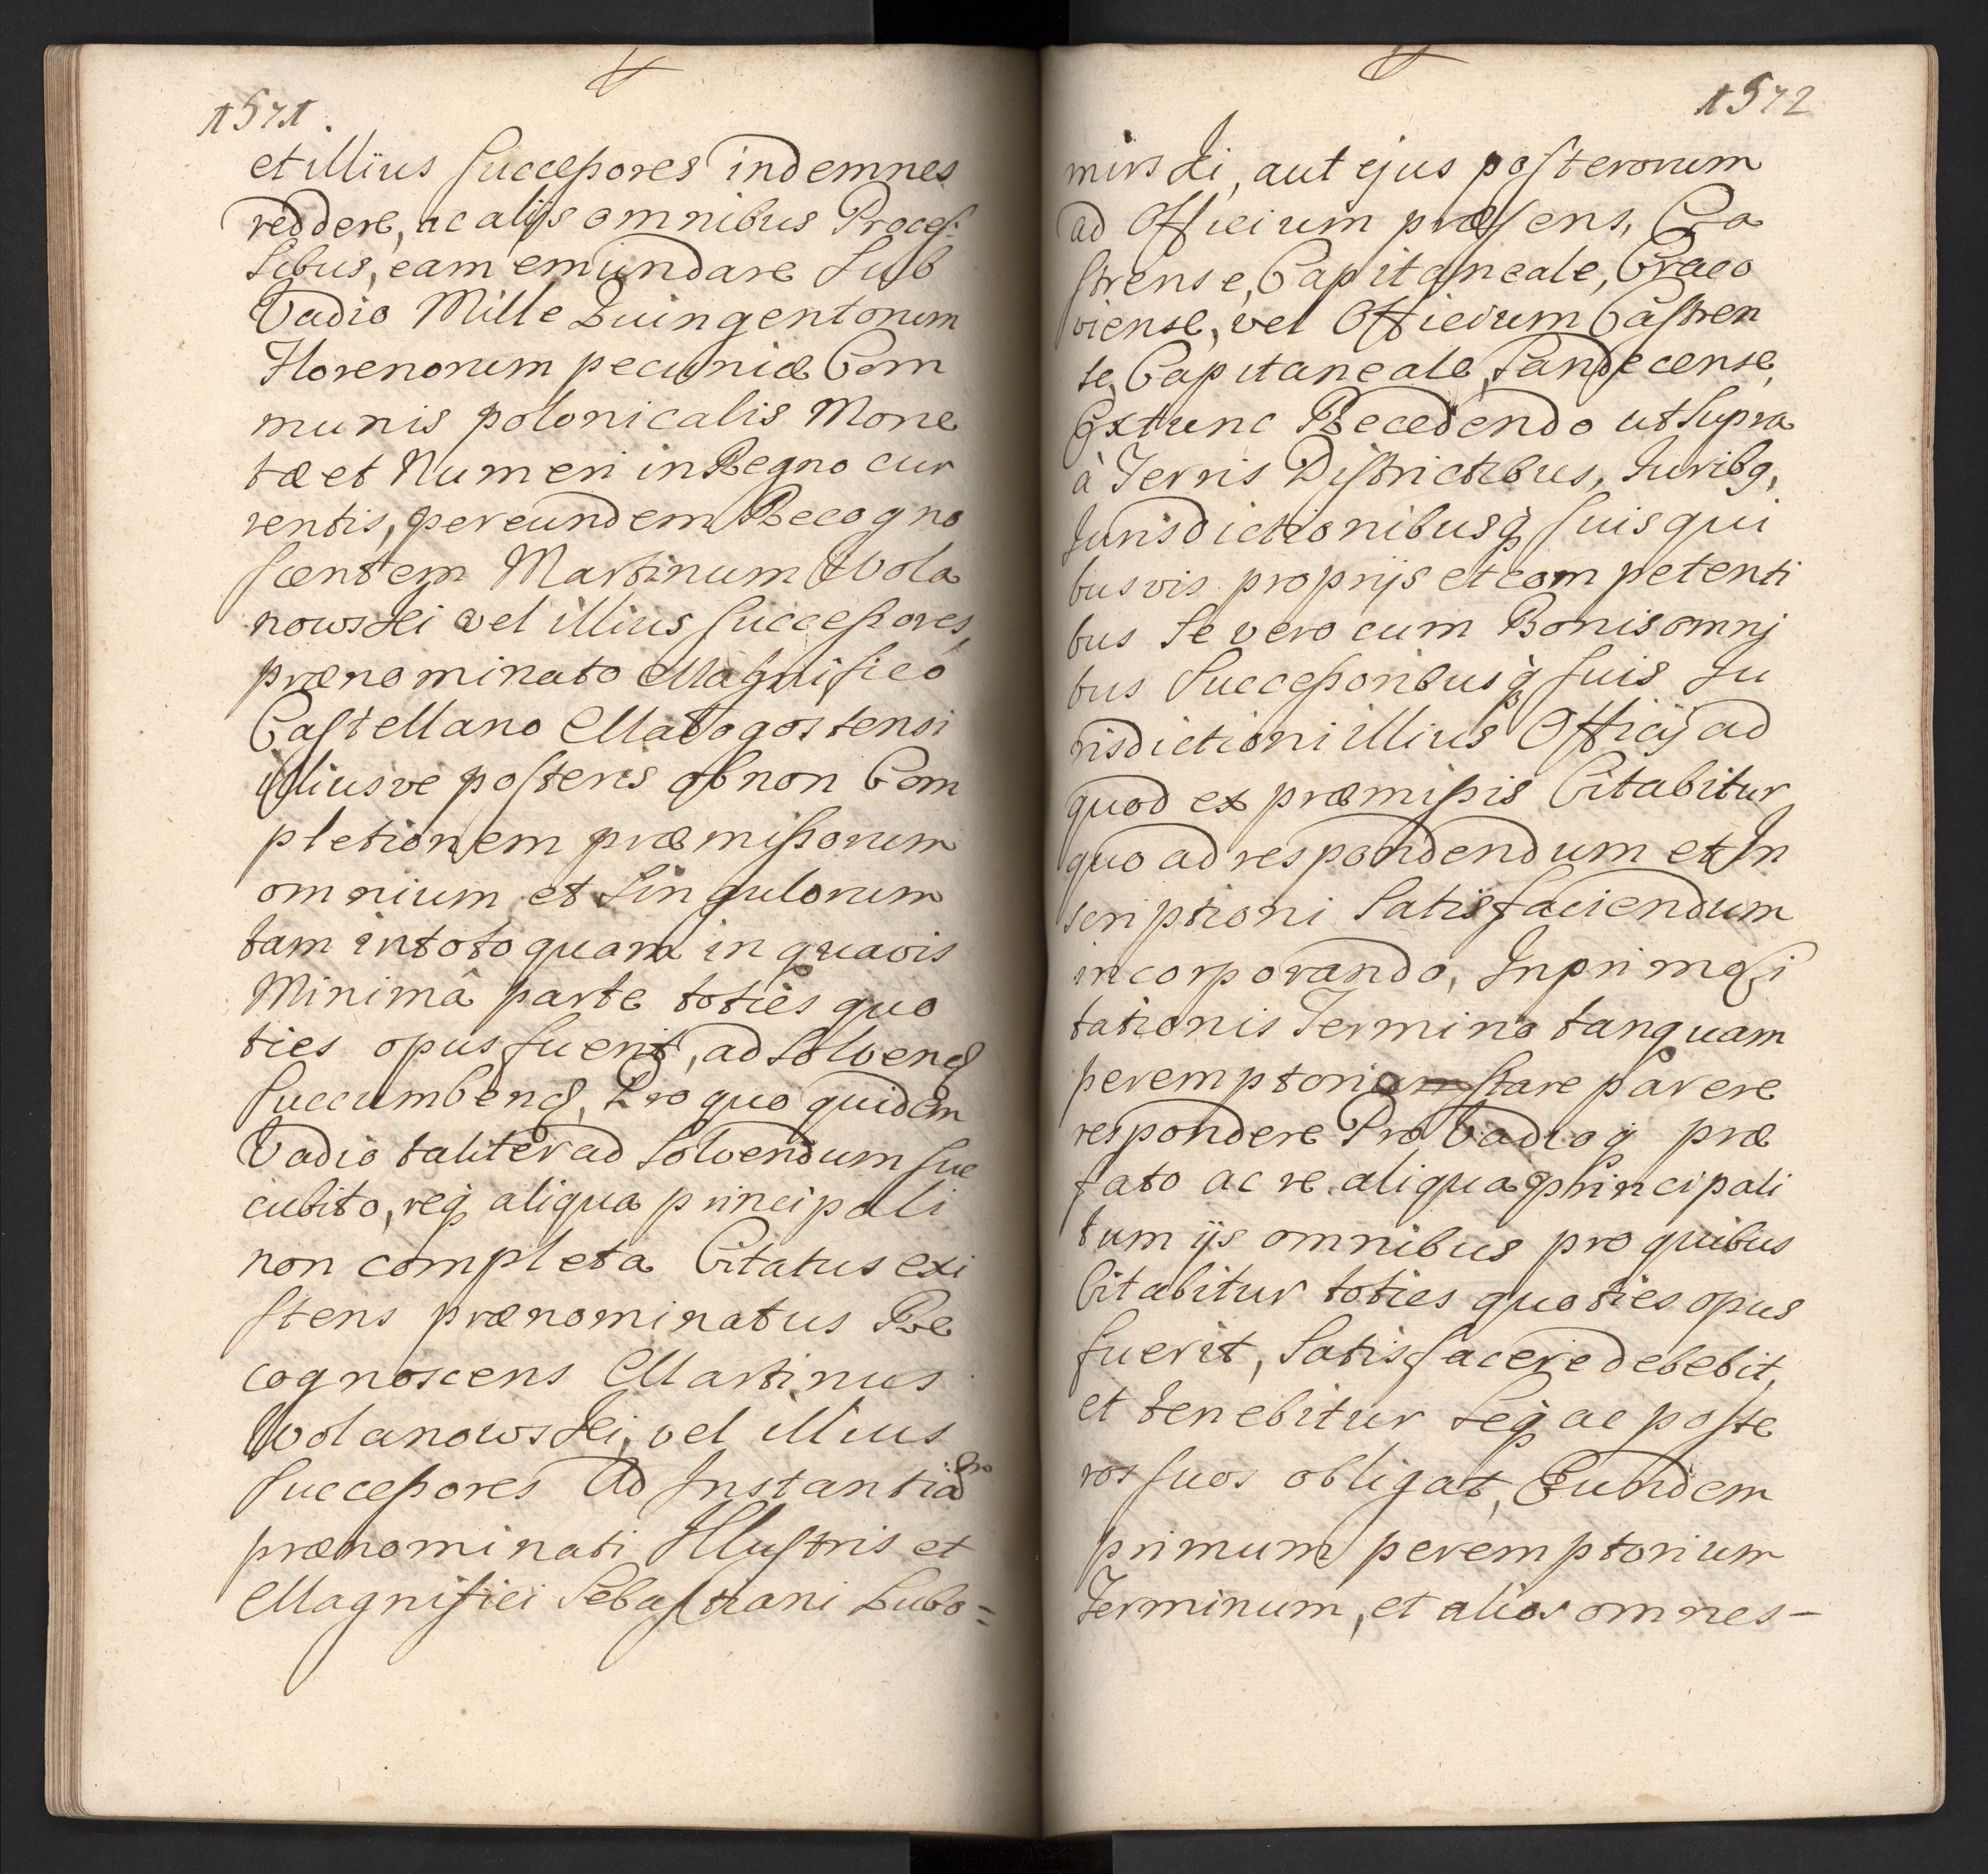 1571.
et illius successores indemnes
reddere, ac alijs omnibus Proces-
sibus, eam emundare sub
Vadio Mille Quingentorum
Florenorum pecuniæ Com
munis polonicalis Mone
tæ et Numeri in Regno cur
rentis, per eundem Recogno
scentem Martinum Wola
nowski vel illius successores,
prænominato Magnifico
Castellano Małogostensi
illiusve posteris ob non Com
pletionem præmissorum
omnium et singulorum
tam in toto quam in quavis
Minimâ parte toties quo
ties opus fuerit, ad solvend
succumbend, Pro quo quidem
Vadio taliter ad solvendum suc
cubito, req aliqua principali
non completa Citatus exi
stens prænominatus Re
cognoscens Martinus
Wolanowski, vel illius
successores Ad Instantiã
prænominati Illustris et
Magnifici Sebastiani Lubo=
1572
mirski, aut ejus posterorum
ad Officium præsens, Ca
strense, Capitaneale, Craco
viense, vel Officium Castren
se, Capitaneale, Sandecense,
Extunc Recedendo ut supra
à Terris Districtibus, Juribq,
Jurisdictionibusq suis qui
busvis proprijs et competenti
bus se vero cum Bonis omni
bus Successoribusq suis Ju
risdictioni illius Officij ad
quod ex præmissis Citabitur
quo ad respondendum et In
scriptioni Satisfaciendum
incorporando, In primo Ci
tationis Termino tanquam
peremptorio stare parere
respondere Pro Vadioq præ
fato ac re aliqua principali
tum ijs omnibus pro quibus
Citabitur toties quoties opus
fuerit, Satisfacere debebit,
et tenebitur seq ac poste
ros suos obligat, Eundem
primum peremptorium
Terminum, et alios omnes-